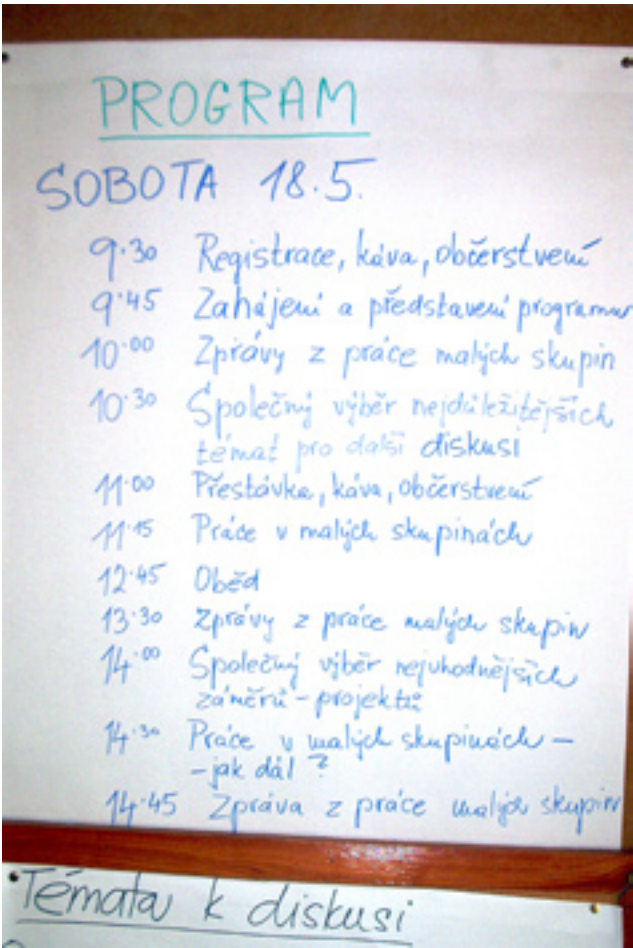 PROGRAM
SOBOTA 18.5.
9.30 Registrace, káva, občerstvení
9.45 Zahájení a představení programu
10.00 Zprávy z práce malých skupin
10.30 Společný výběr nejdůležitějších
témat pro další diskusi
11.00 Přestávka, káva, občerstvení
11.15 Práce v malých skupinách
12.45 Oběd
13.30 Zprávy z práce malých skupin
14.00 Společný výběr nejvhodnějších
záměrů - projektů
14.30 Práce v malých skupinách -
- jak dál ?
14.45 Zpráva z práce malých skupin
Témata k diskusi